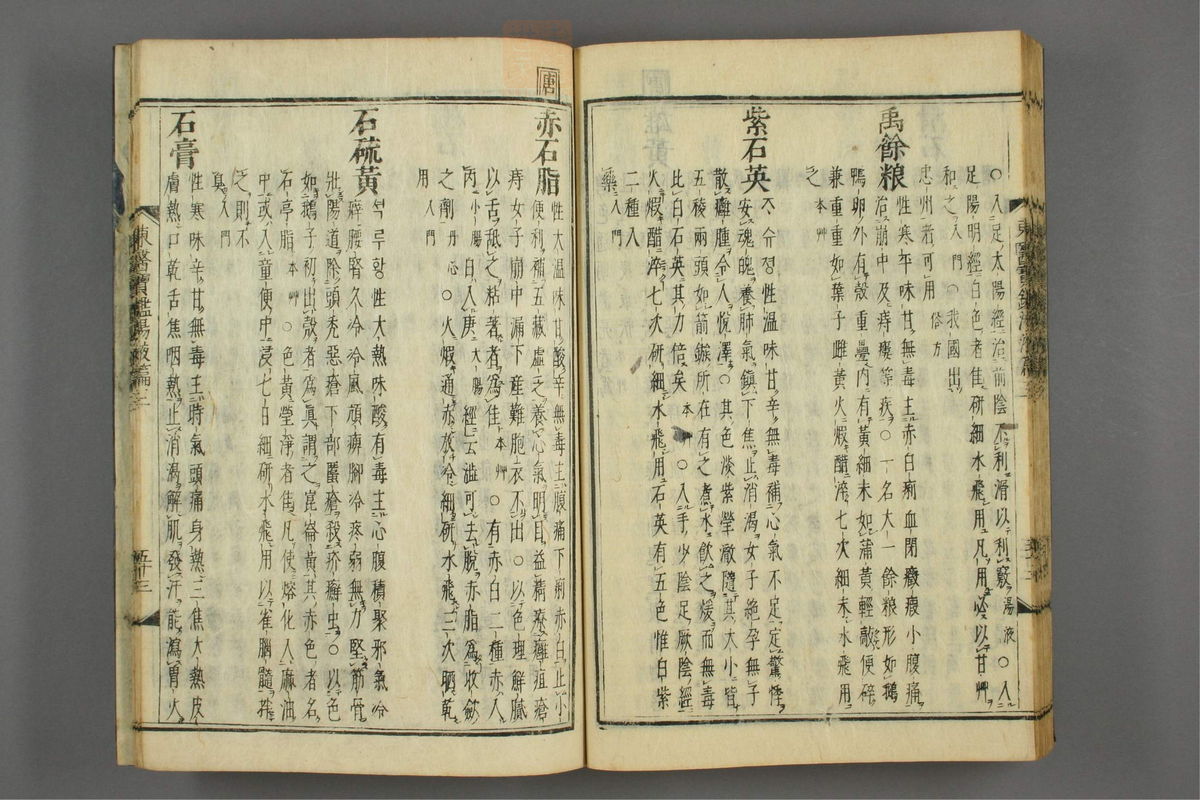 ○入足太陽經治前陰不利滑以利竅湯液○入
足陽明經白色者佳研細水飛用凡用必以甘艸
和之入門○我國出
忠州者可用俗方
禹餘粮
性寒平味甘無毒主赤白痢血閉癥瘕小腹痛
治崩中及痔瘻等疾○一名大一餘粮形如鵝
鴨卵外有殼重疊內有黃細末如蒲黃輕敲便碎
兼重重如葉子雌黃火煆醋淬七次細末水飛用
之本艸
紫石英
ᄌᆞ슈졍性溫味甘辛無毒補心氣不足定驚悸
安魂魄養肺氣鎭下焦止消渴女子絶孕無子
散癰腫令人悅澤○其色淡紫瑩澈隨其大小皆
五稜兩頭如箭鏃所在有之煮水飮之煖而無毒
比白石英其力倍矣本艸○入手少陰足厥陰經
火煆醋淬七次研細水飛用石英有五色惟白紫
二種入
藥入門
唐
赤石脂
性大溫味甘酸辛無毒主腹痛下痢赤白止小
便利補五藏虛乏養心氣明目益精療癰疽瘡
痔女子崩中漏下産難胞衣不出○以色理鮮膩
以舌舐之粘著者爲佳本艸○有赤白二種赤入
丙小腸白入庚大腸經云澁可去脫赤脂爲收斂
之劑丹心○火煆通赤放冷細研水飛三次晒乾
用入門
石硫黃
셕류황性大熱味酸有毒主心腹積聚邪氣冷
癖腰腎久冷冷風頑痺腳冷疼弱無力堅筋骨
壯陽道除頭禿惡瘡下部䘌瘡殺疥癬虫○以色
如鵝子初出殼者爲眞謂之崑崙黃其赤色者名
石亭脂本艸○色黃瑩淨者佳凡使熔化入麻油
中或入童便中浸七日細研水飛用以雀腦髓拌
之則不
臭入門
石膏
性寒味辛甘無毒主時氣頭痛身熱三焦大熱皮
膚熱口乾舌焦咽熱止消渴解肌發汗能瀉胃火
東醫寶鑑湯液篇三
五十三